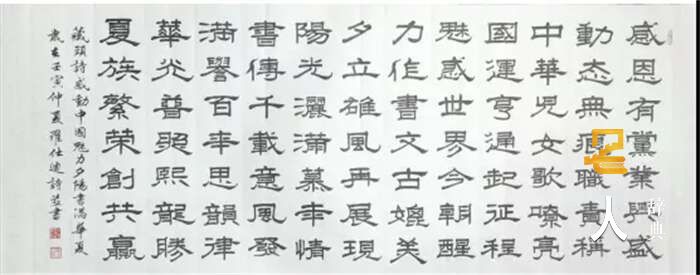 感恩有黨業盛
動态無職責稱
中華兒女歌嘹亮
國運亨通起征程
魅惑世界今朝醒
力作書文古媲美
夕立雄風再展現
陽光灑滿慕幸情
書傳千載意風發
滿譽百年思韻律
華光普照熙龍勝
夏族繁荣創共贏
藏頭詩感動中國魅力夕陽書满華夏
歲在壬寅仲夏羅仕詩並書
名人
辞典